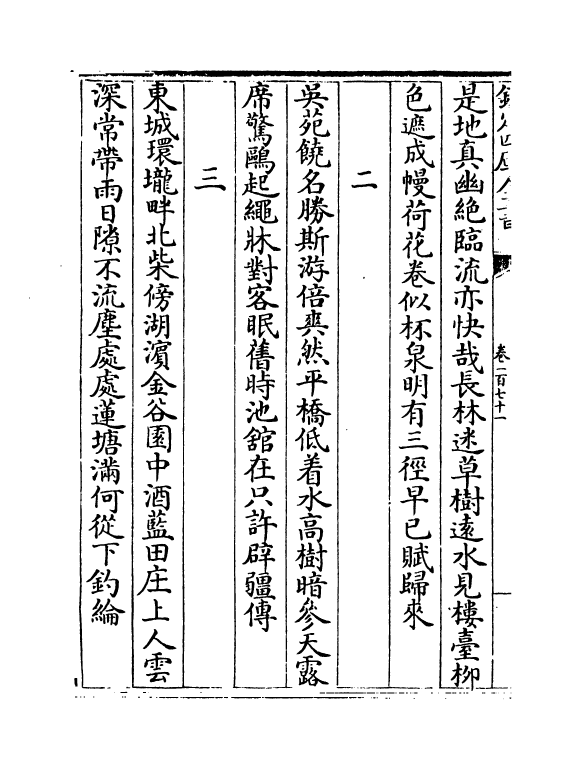 是地真幽絶臨流亦快哉長林迷草樹遠水見樓臺柳
色遮成幔荷花卷似杯泉明有三徑早已賦歸來
二
吳苑饒名勝斯游倍爽然平橋低着水高樹暗參天露
席驚鷗起繩牀對客眠舊時池舘在只許辟疆傳
三
東城環壠畔北柴傍湖濵金谷園中酒藍田庄上人雲
深常帶雨日隙不流塵處處蓮塘滿何從下釣綸
卷二百七十一